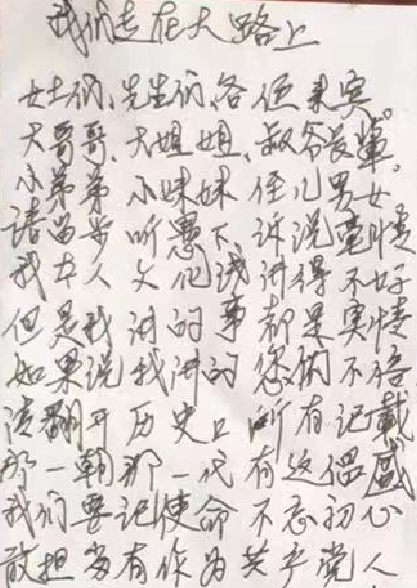 我们走在大路上
女士们、先生们、各位来宾。
大哥哥、大姐姐、叔爷长辈。
小弟弟 小妹妹 侄儿男女
请留步 听愚下、诉说衷情
我本人 文化浅 讲得不好
但是我 讲的事 都是实情
如果说 我讲的 您们不信
请翻开 历史上 所有记载
那一朝那一代 有这盛
我们要记使命 不忘初心
敢担当有作为共产党人